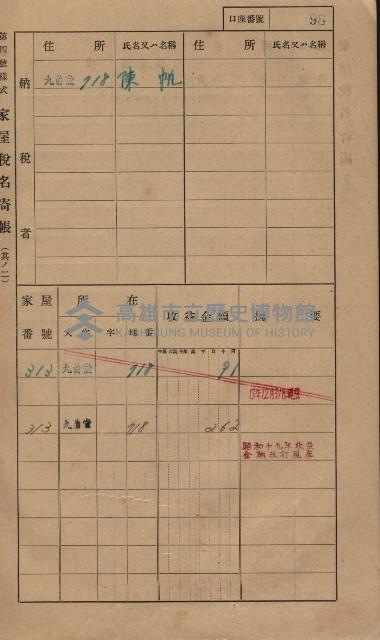 口座番號 98
第四號樣式 家屋稅名寄帳 (其ノ二)
納稅者
住所 氏名又ハ名稱 住所 氏名又ハ名稱
九曲堂 718 陳 帆
家屋番號 所在 收益金額 摘要
大字 字 地番
313 九曲堂 718 91
313 九曲堂 718 262
昭和十九年收益
金額改訂現在
高雄市立歷史博物館
KAOHSIUNG MUSEUM OF HISTORY